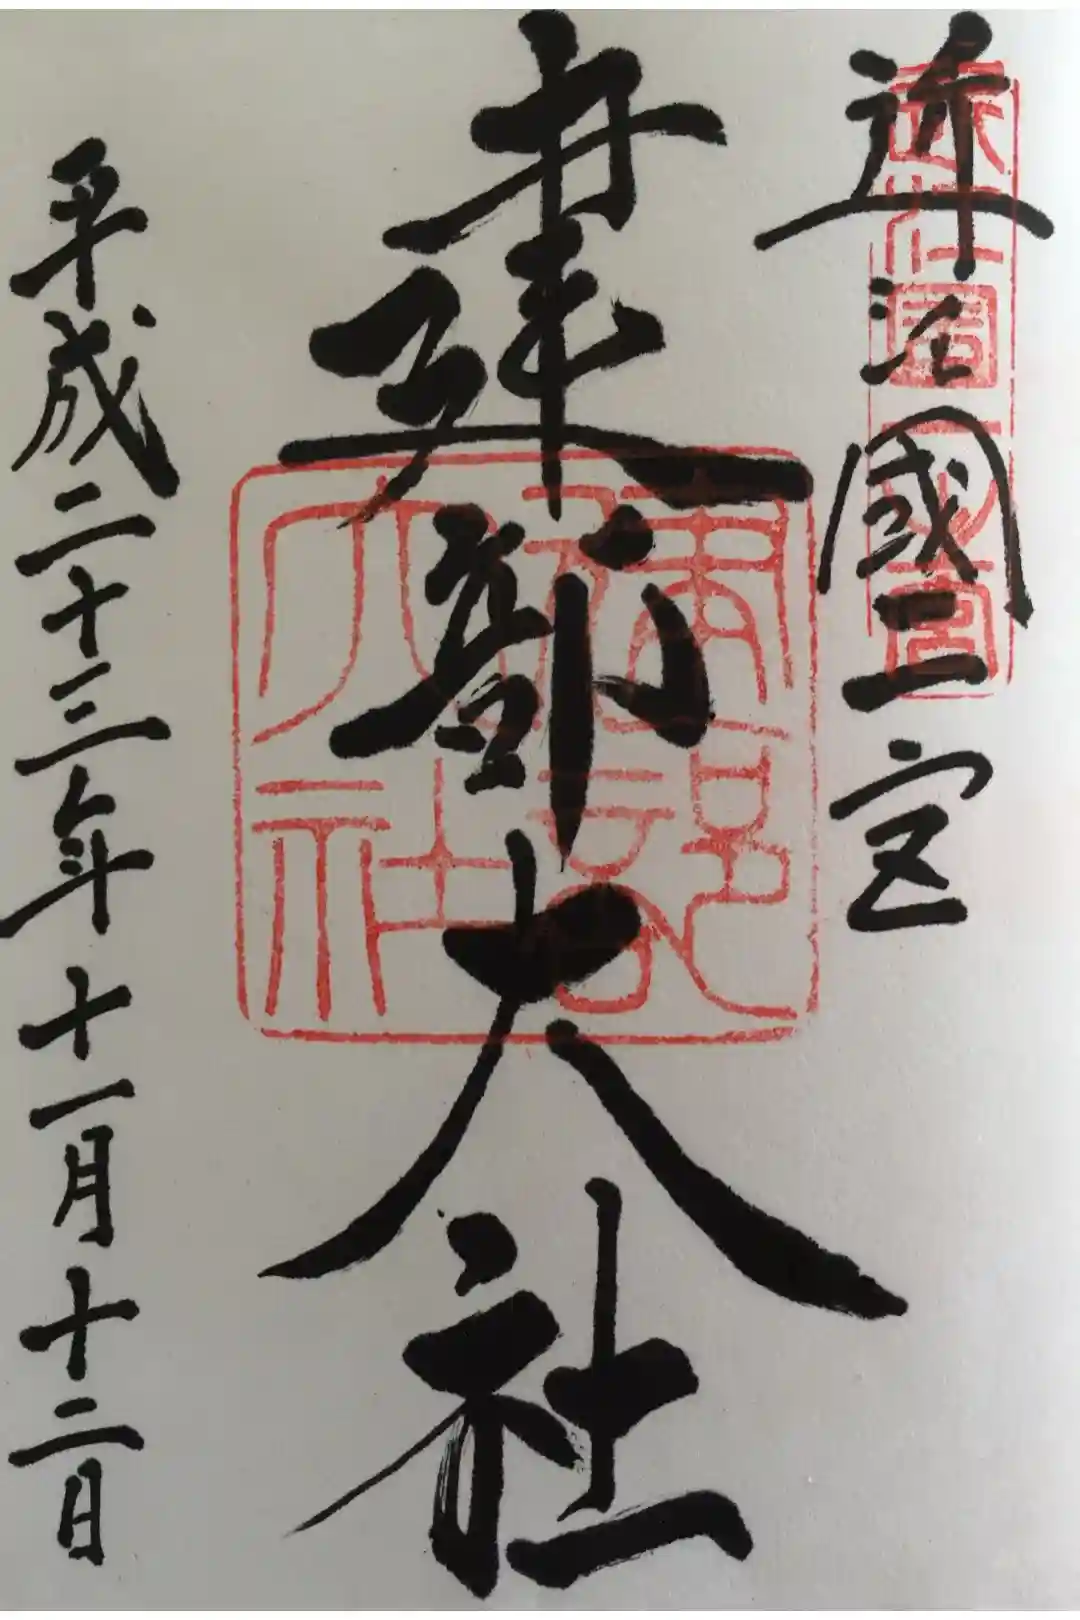 近江國一宮
近江國一之宮
建部大社
平成二十三年十一月十二日